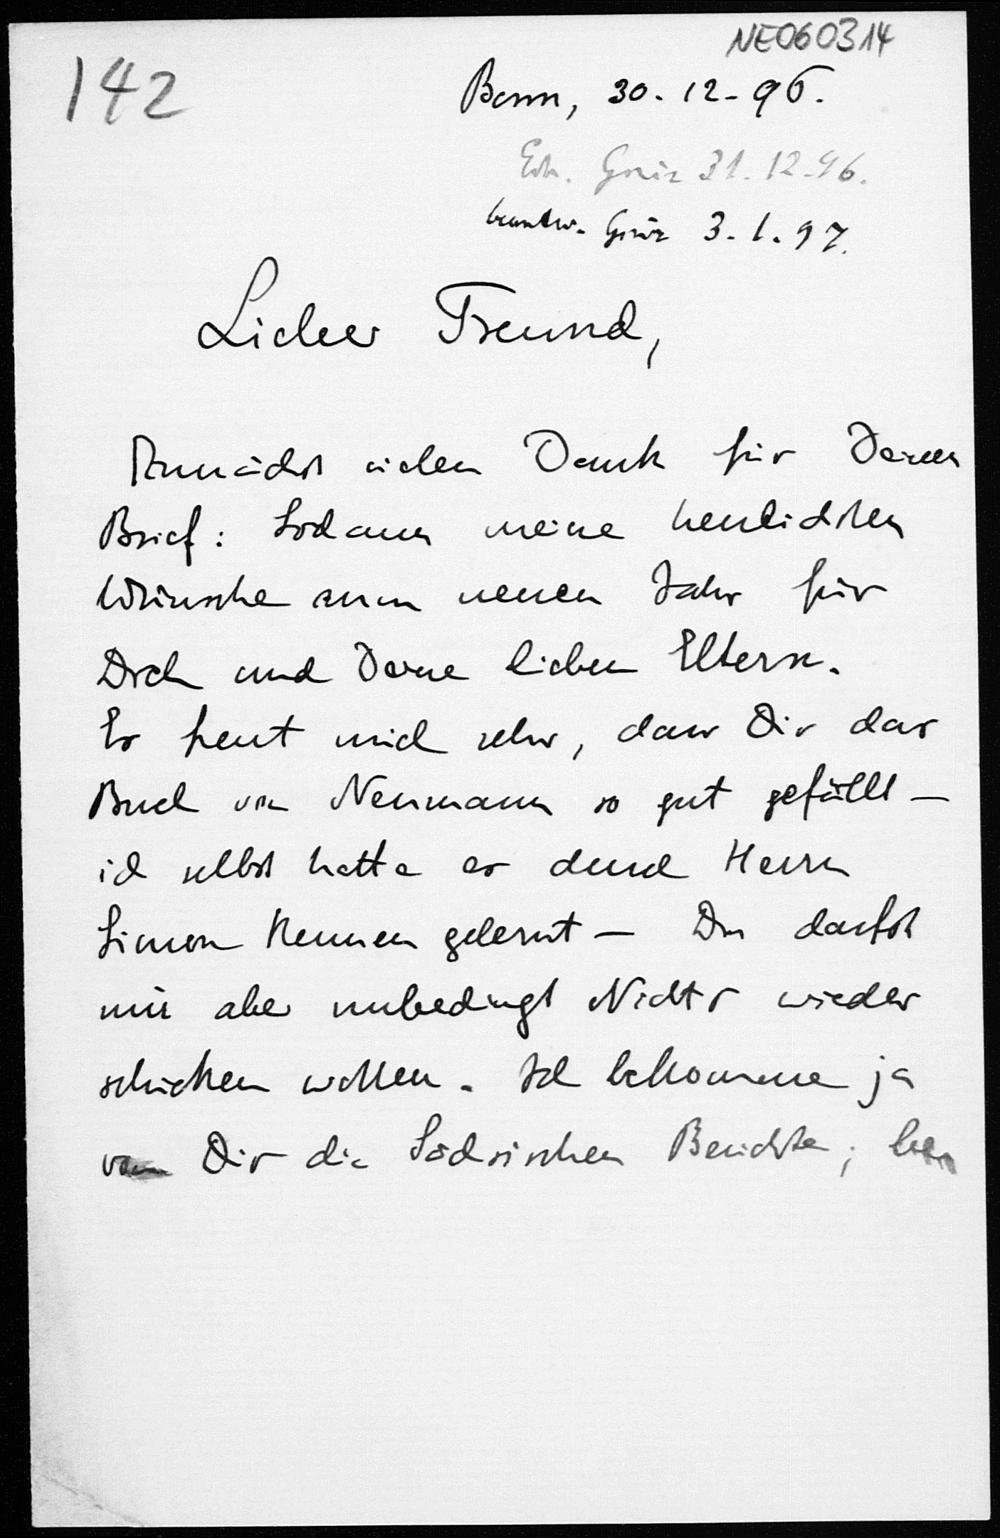 NE060314
142
Bonn, 30-12-96.
Erh. Graz 31.12.96.
beantw. Graz 3.1.97.
Lieber Freund,
Zunächst vielen Dank für Deinen
Brief: Sodann meine herzlichsten
Wünsche zum neuen Jahr für
Dich und Deine lieben Eltern.
Es freut mich sehr, dass Dir das
Buch von Neumann so gut gefällt –
ich selbst hatte es durch Herrn
Simon kennen gelernt – Du darfst
mir aber unbedingt Nichts wieder
schicken wollen. Ich bekomme ja
von Dir die Sächsischen Berichte;